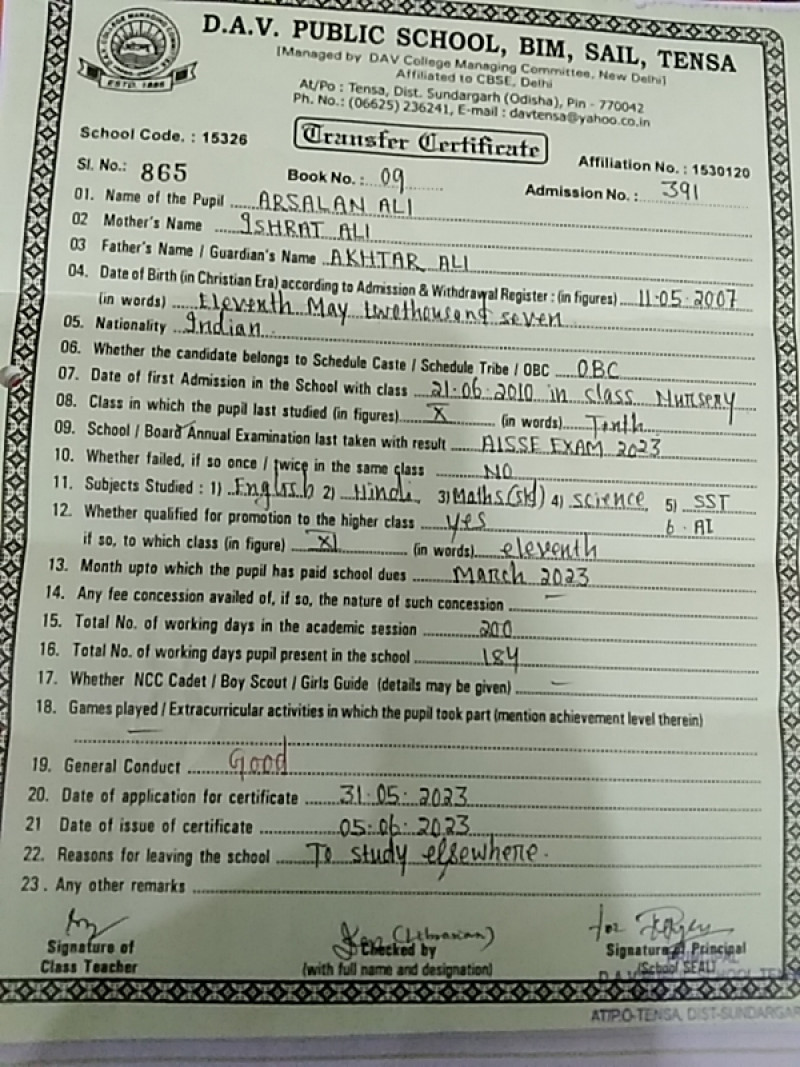 D.A.V. PUBLIC SCHOOL, BIM, SAIL, TENSA
[Managed by DAV College Managing Committee, New Delhi]
Affiliated to CBSE, Delhi
At/Po : Tensa, Dist. Sundargarh (Odisha), Pin - 770042
Ph. No.: (06625) 236241, E-mail : davtensa@yahoo.co.in
ESTD. 1886
School Code. : 15326
Transfer Certificate
Affiliation No. : 1530120
Sl. No.: 865 Book No.: 09 Admission No.: 391
01. Name of the Pupil ARSALAN ALI
02 Mother's Name ISHRAT ALI
03 Father's Name / Guardian's Name AKHTAR ALI
04. Date of Birth (in Christian Era) according to Admission & Withdrawal Register : (in figures) 11·05·2007
(in words) Eleventh May twothousand seven
05. Nationality Indian
06. Whether the candidate belongs to Schedule Caste / Schedule Tribe / OBC OBC
07. Date of first Admission in the School with class 21·06·2010 in class Nursery
08. Class in which the pupil last studied (in figures) X (in words) Tenth
09. School / Board Annual Examination last taken with result AISSE EXAM 2023
10. Whether failed, if so once / twice in the same class NO
11. Subjects Studied : 1) English 2) Hindi 3) Maths (Std) 4) science 5) SST
6. AI
12. Whether qualified for promotion to the higher class yes
if so, to which class (in figure) XI (in words) eleventh
13. Month upto which the pupil has paid school dues March 2023
14. Any fee concession availed of, if so, the nature of such concession —
15. Total No. of working days in the academic session 200
16. Total No. of working days pupil present in the school 184
17. Whether NCC Cadet / Boy Scout / Girls Guide (details may be given) —
18. Games played / Extracurricular activities in which the pupil took part (mention achievement level therein)
—
19. General Conduct Good
20. Date of application for certificate 31·05·2023
21 Date of issue of certificate 05·06·2023
22. Reasons for leaving the school To study elsewhere.
23. Any other remarks
(Librarian)
for
Signature of
Class Teacher
Checked by
(with full name and designation)
Signature of Principal
(School SEAL)
AT/P.O-TENSA, DIST-SUNDARGAR